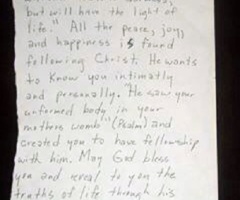 but will have the light of
life." All the peace, joy,
and happiness is found
following Christ. He wants
to know you intimatly
and personally. "He saw your
unformed body in your
mothers womb" (Psalm) and
created you to have fellowship
with him. May God bless
you and reveal to you the
truths of life through his